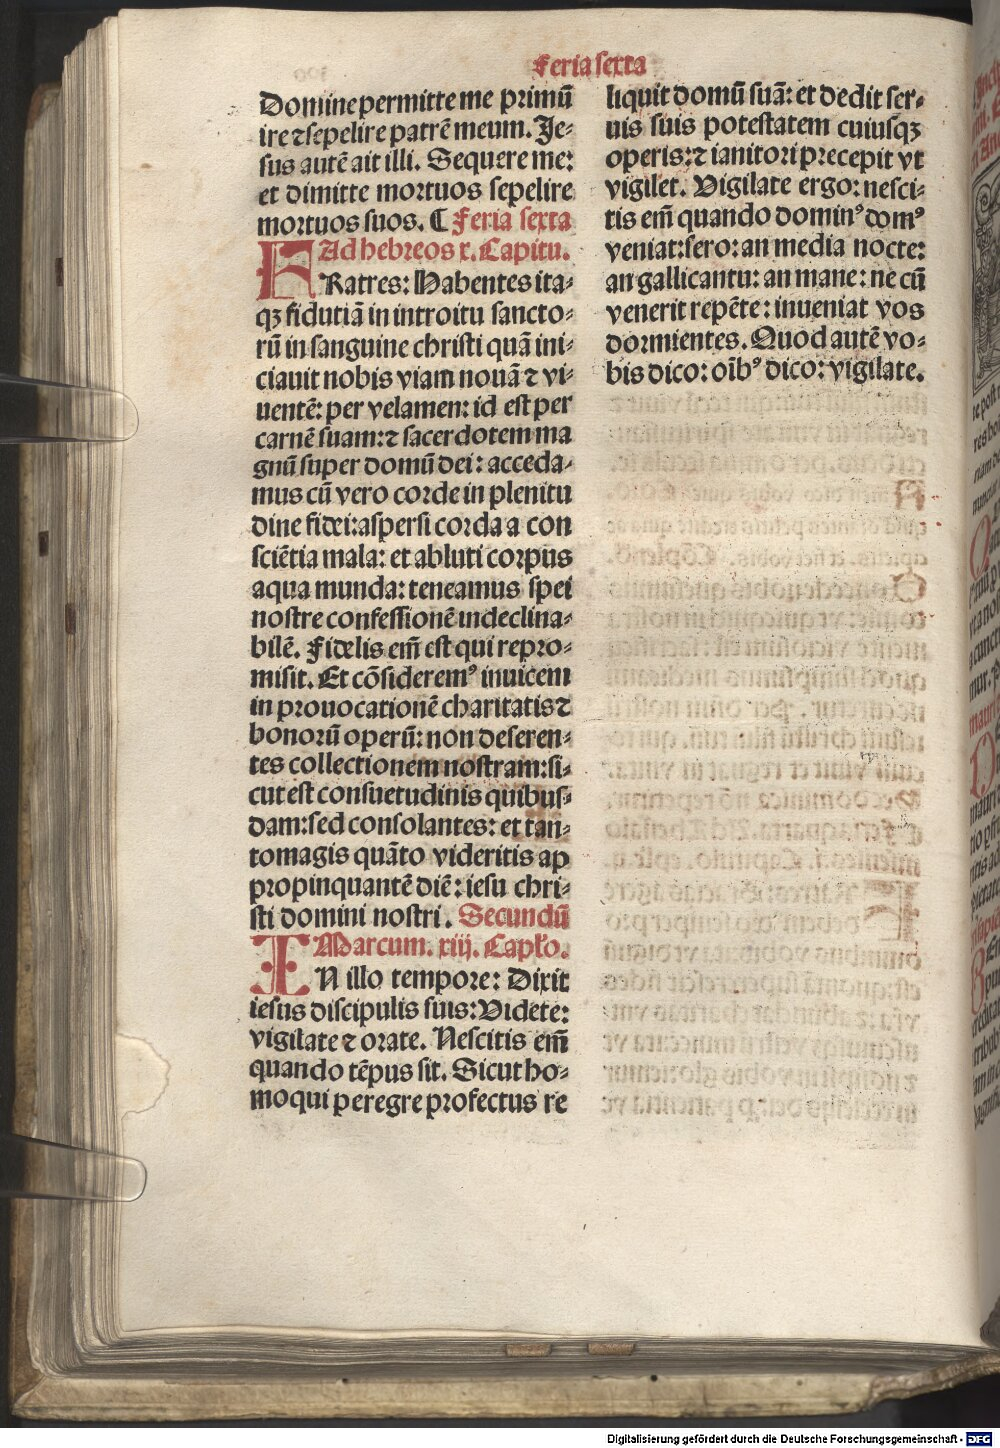 Feria sexta
Domine permitte me primū
ire ⁊ sepelire patrē meum. Je⸗
sus autē ait illi. Sequere me:
et dimitte mortuos sepelire
mortuos suos. ¶ Feria sexta
Ad hebreos x. Capitu.
FRatres: Habentes ita⸗
qȝ fidutiā in introitu sancto⸗
rū in sanguine christi quā ini⸗
ciauit nobis viam nouā ⁊ vi⸗
uentē: per velamen: id est per
carnē suam: ⁊ sacerdotem ma
gnū super domū dei: acceda⸗
mus cū vero corde in plenitu
dine fidei: aspersi corda a con
sciētia mala: et abluti corpus
aqua munda: teneamus spei
nostre confessionē indeclina⸗
bilē. Fidelis em̄ est qui repro⸗
misit. Et cōsiderem⁹ inuicem
in prouocationē charitatis ⁊
bonorū operū: non deseren⸗
tes collectionem nostram: si⸗
cut est consuetudinis quibus⸗
dam: sed consolantes: et tan⸗
tomagis quāto videritis ap
propinquantē diē: iesu chri⸗
sti domini nostri. Secundū
Marcum. xiij. Capło.
IN illo tempore: Dixit
iesus discipulis suis: Videte:
vigilate ⁊ orate. Nescitis em̄
quando tēpus sit. Sicut ho⸗
mo qui peregre profectus re
liquit domū suā: et dedit ser⸗
uis suis potestatem cuiusqȝ
operis: ⁊ ianitori precepit vt
vigilet. Vigilate ergo: nesci⸗
tis em̄ quando domin⁹ dom⁹
veniat: sero: an media nocte:
an gallicantu: an mane: ne cū
venerit repēte: inueniat vos
dormientes. Quod autē vo⸗
bis dico: oīb⁹ dico: vigilate.
Digitalisierung gefördert durch die Deutsche Forschungsgemeinschaft - DFG